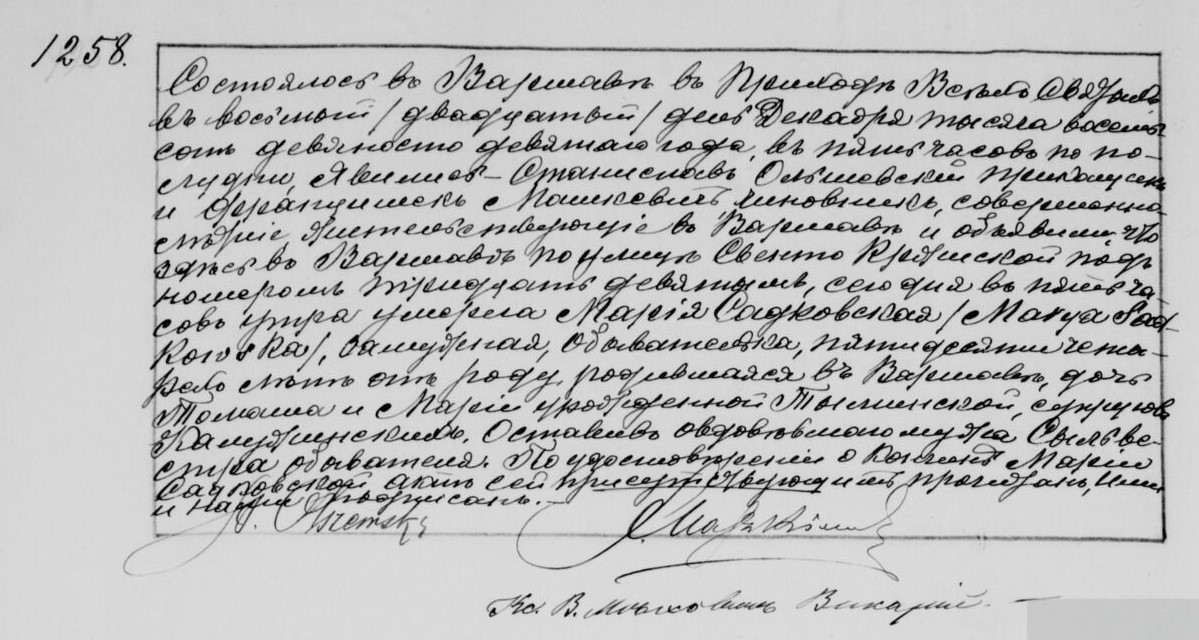 1258.
Состоялось въ Варшавѣ въ приходѣ Всѣхъ Святыхъ
въ восьмой /двадцатый/ день Декабря тысяча восемь
сотъ девяносто девятаго года, въ пять часовъ по по-
лудни, Явились Станиславъ Ольшевскій
и Францишекъ Машкевичъ, чиновникъ, совершенно-
лѣтніе, жительствующіе въ Варшавѣ и объявили, что
здѣсь въ Варшавѣ по улицѣ Свенто Кржиской подъ
номеромъ тридцать девятымъ, сегодня въ пять ча-
совъ утра умерла Марія Садковская /Marya Sad-
kowska/, замужная, обывателька, пятидесяти четы-
рехъ лѣтъ отъ роду, родившаяся въ Варшавѣ, дочь
Томаша и Маріи урожденной супруговъ
Оставивъ овдовѣвшаго мужа Сильве-
стра обывателя. По удостовѣреніи о кончинѣ Маріи
Садковской актъ сей присутствующимъ прочитанъ, ими
и нами подписанъ.
Кс. В. Викарій.